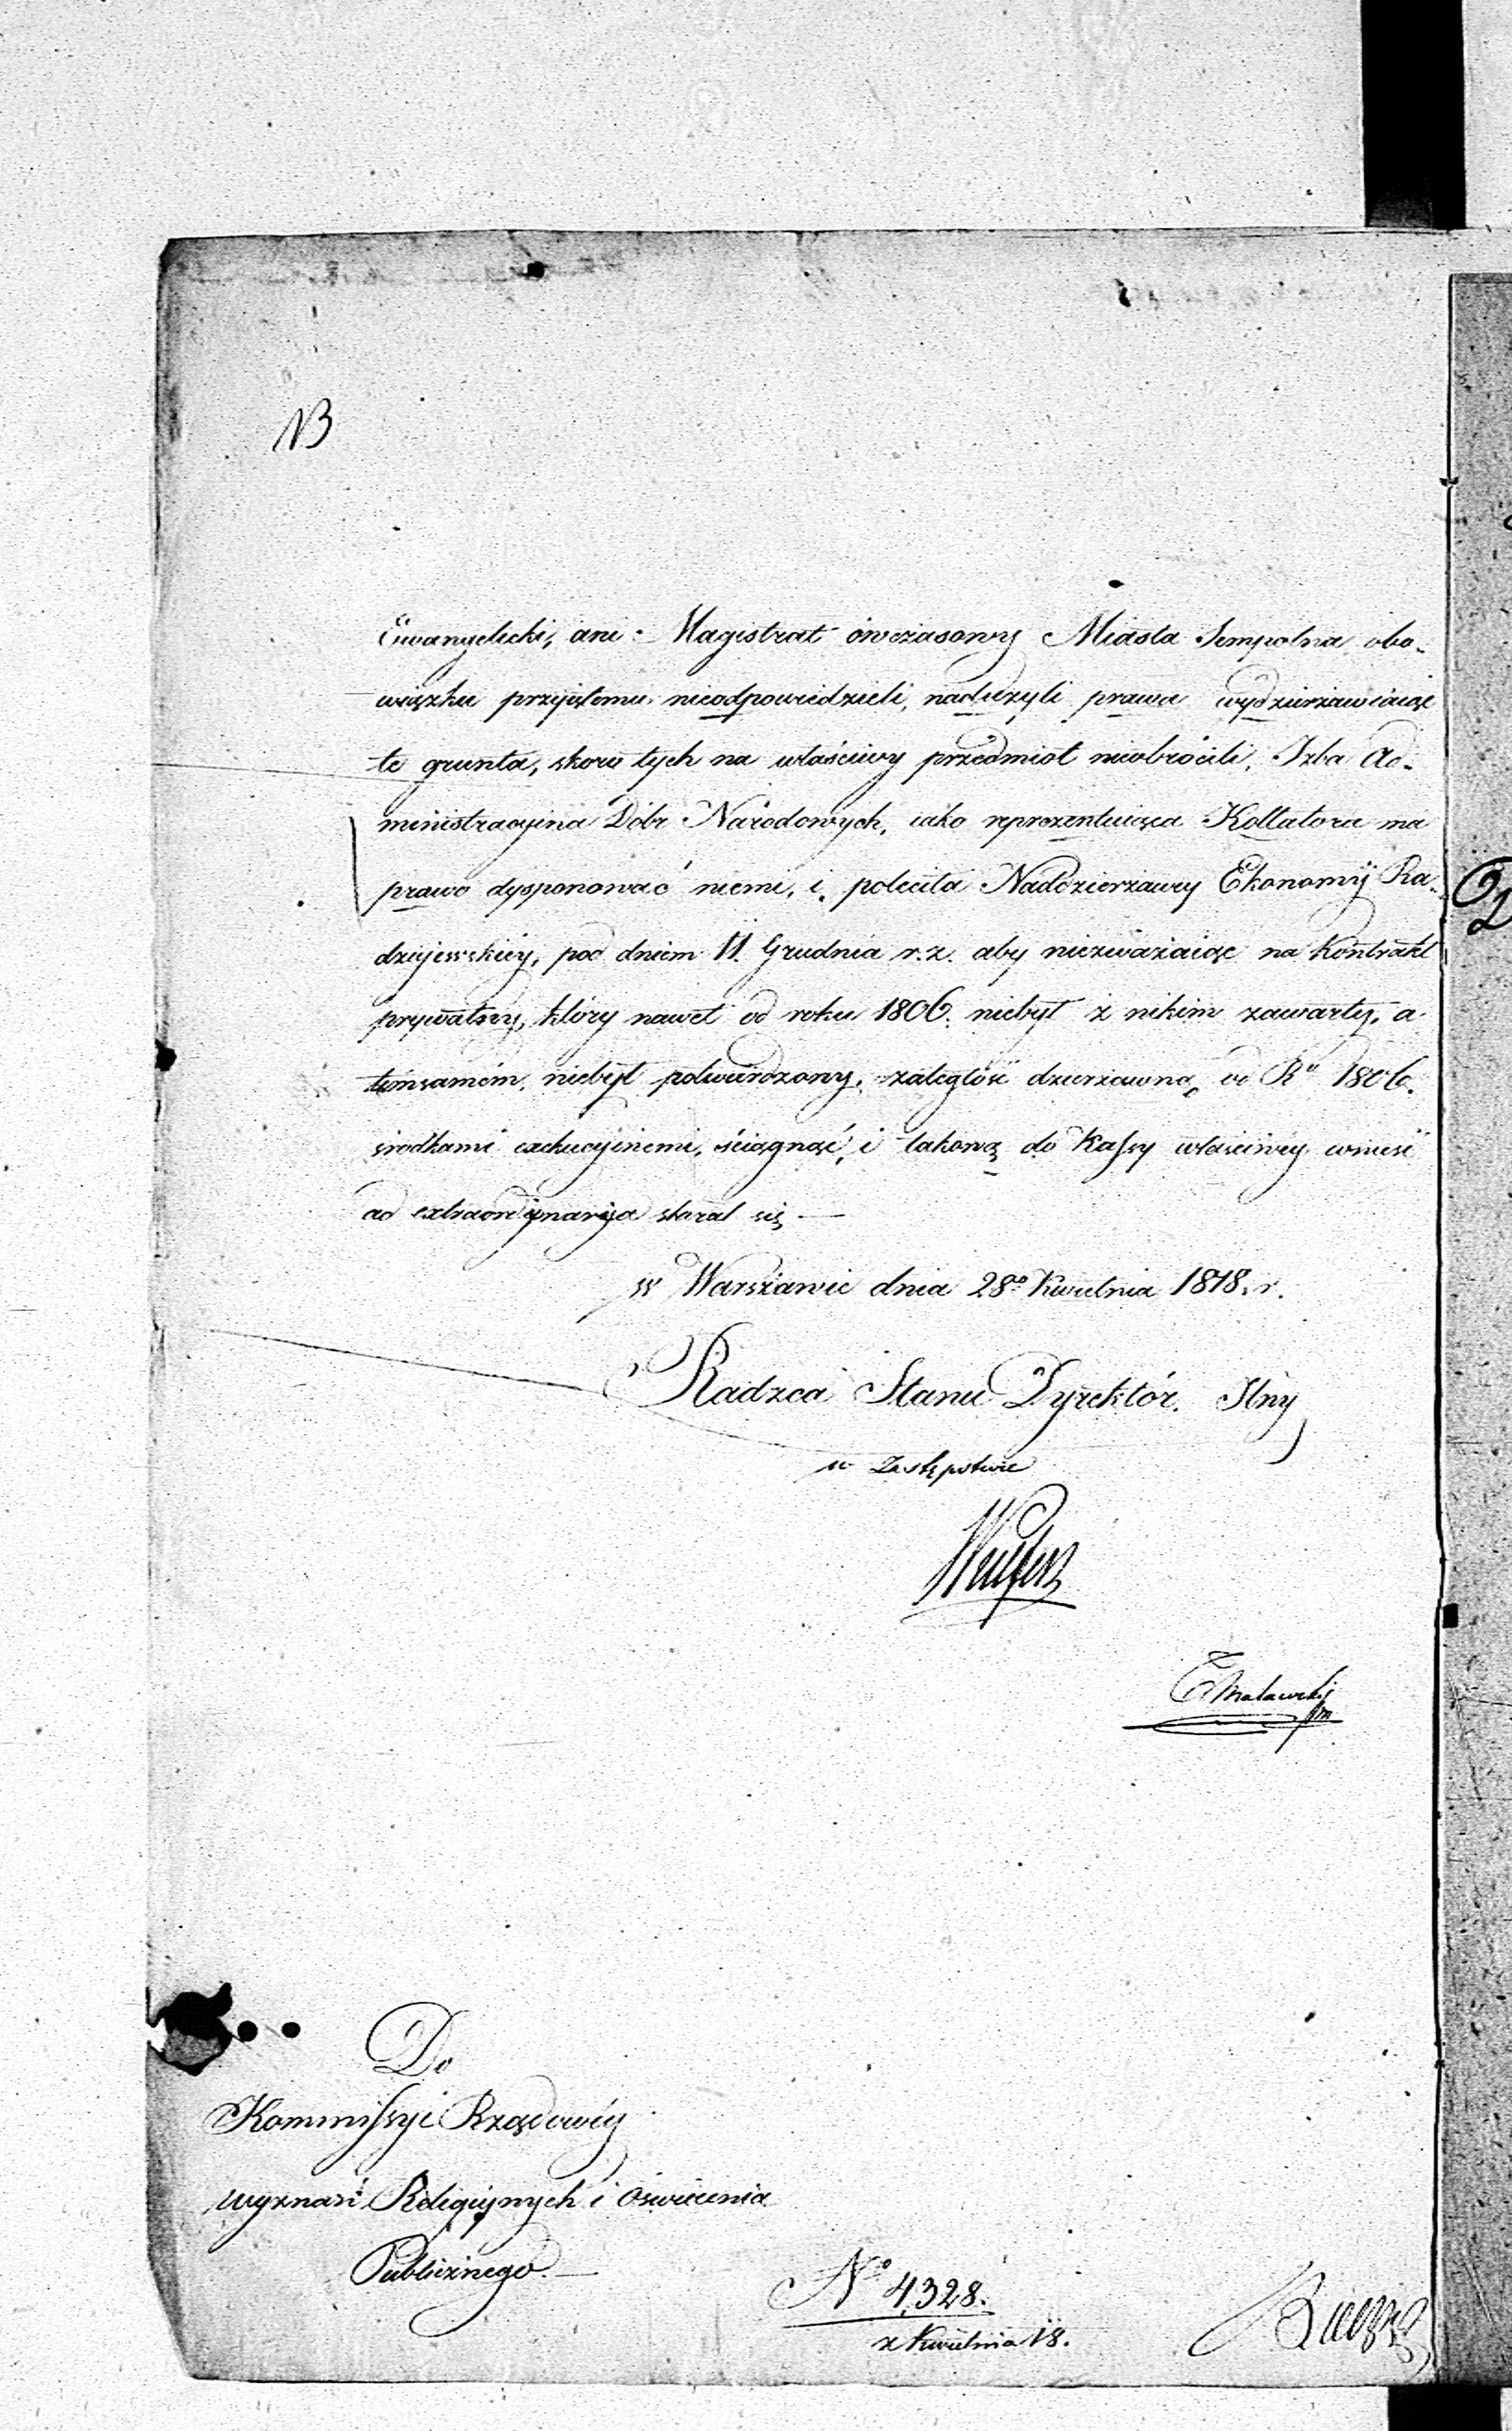 NB
Ewangelicki, ani Magistrat ówczasowy Miasta Sempolna obo-
wiązku przyiętemu nieodpowiedzieli, nadużyli prawa wydzierżawiaiąc
te grunta, skoro tych na właściwy przedmiot nieobrócili, Izba Ad-
ministracyina Dóbr Narodowych, iako reprezentuiąca Kollatora ma
prawo dysponować niemi, i poleciła Naddzierżawcy Ekonomij Ra-
dziejewskiéy, pod dniem 11. Grudnia r. z. aby niezważaiąc na Kontrakt
prywatny, który nawet od roku 1806. niebył z nikim zawarty, a
témsamém niebył potwierdzony, zaległość dzierżawną od Ru 1806.
srodkami exekucyinemi, ściągnąć, i takową do Kassy właściwéy wnieść
ad extraordynaryja starał się —
w Warszawie dnia 28go Kwietnia 1818. r.
Radzca Stanu Dyrektór Jlny
w Zastępstwie
Do
Kommissyi Rządowéy
wyznań Religiynych i Oświecenia
Publicznego —
No 4,328.
z Kwietnia 18.